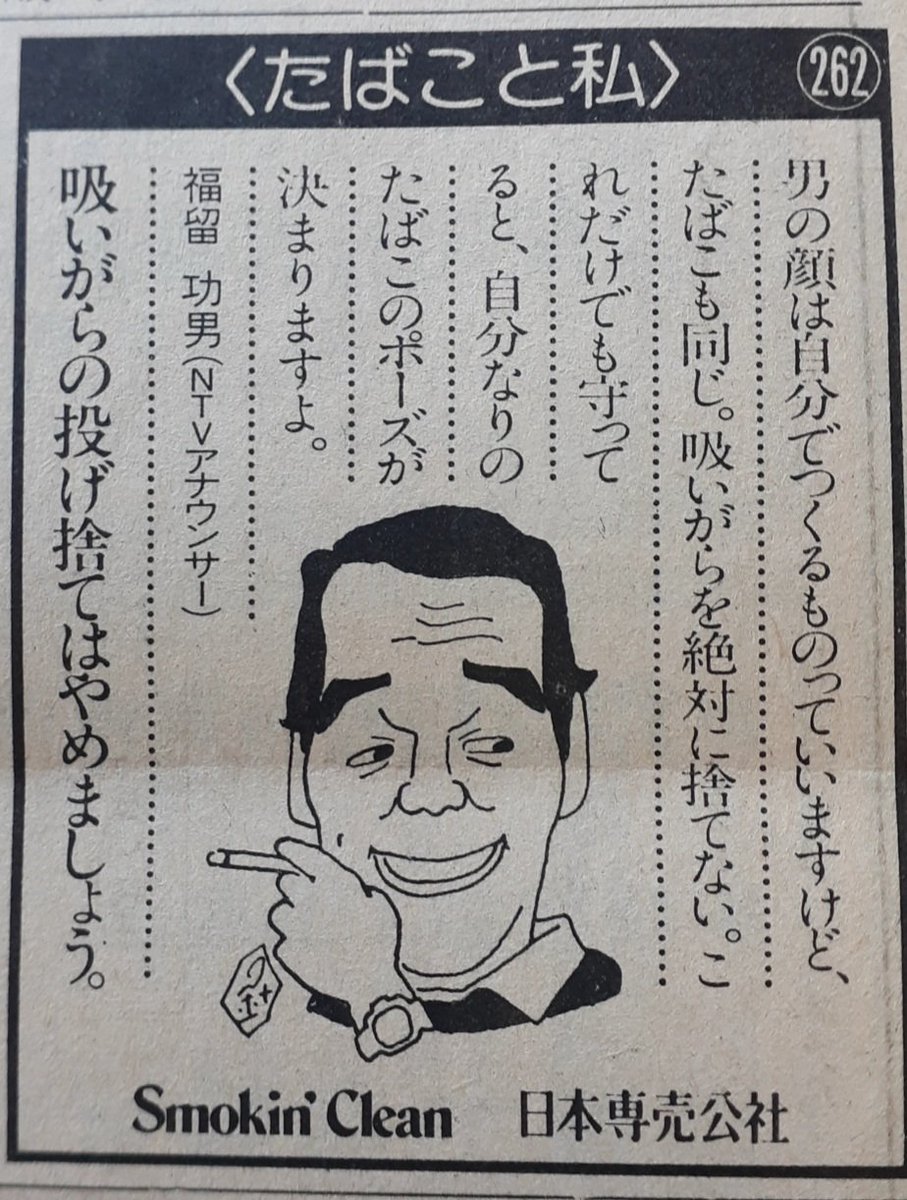 〈たばこと私〉
262
男の顔は自分でつくるものっていいますけど、
たばこも同じ。吸いがらを絶対に捨てない。こ
れだけでも守って
ると、自分なりの
たばこのポーズが
決まりますよ。
福留 功男(NTVアナウンサー)
吸いがらの投げ捨てはやめましょう。
Smokin' Clean 日本専売公社